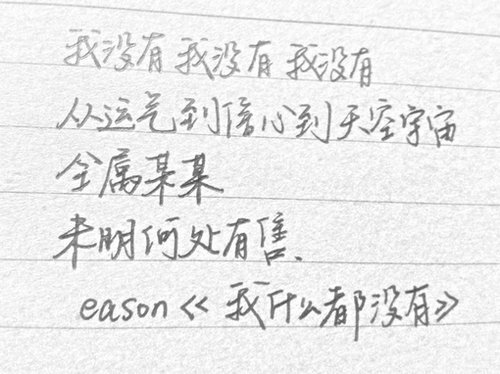 我没有 我没有 我没有
从运气到信心到天空宇宙
全属某某
未明何处有售.
eason《我什么都没有》